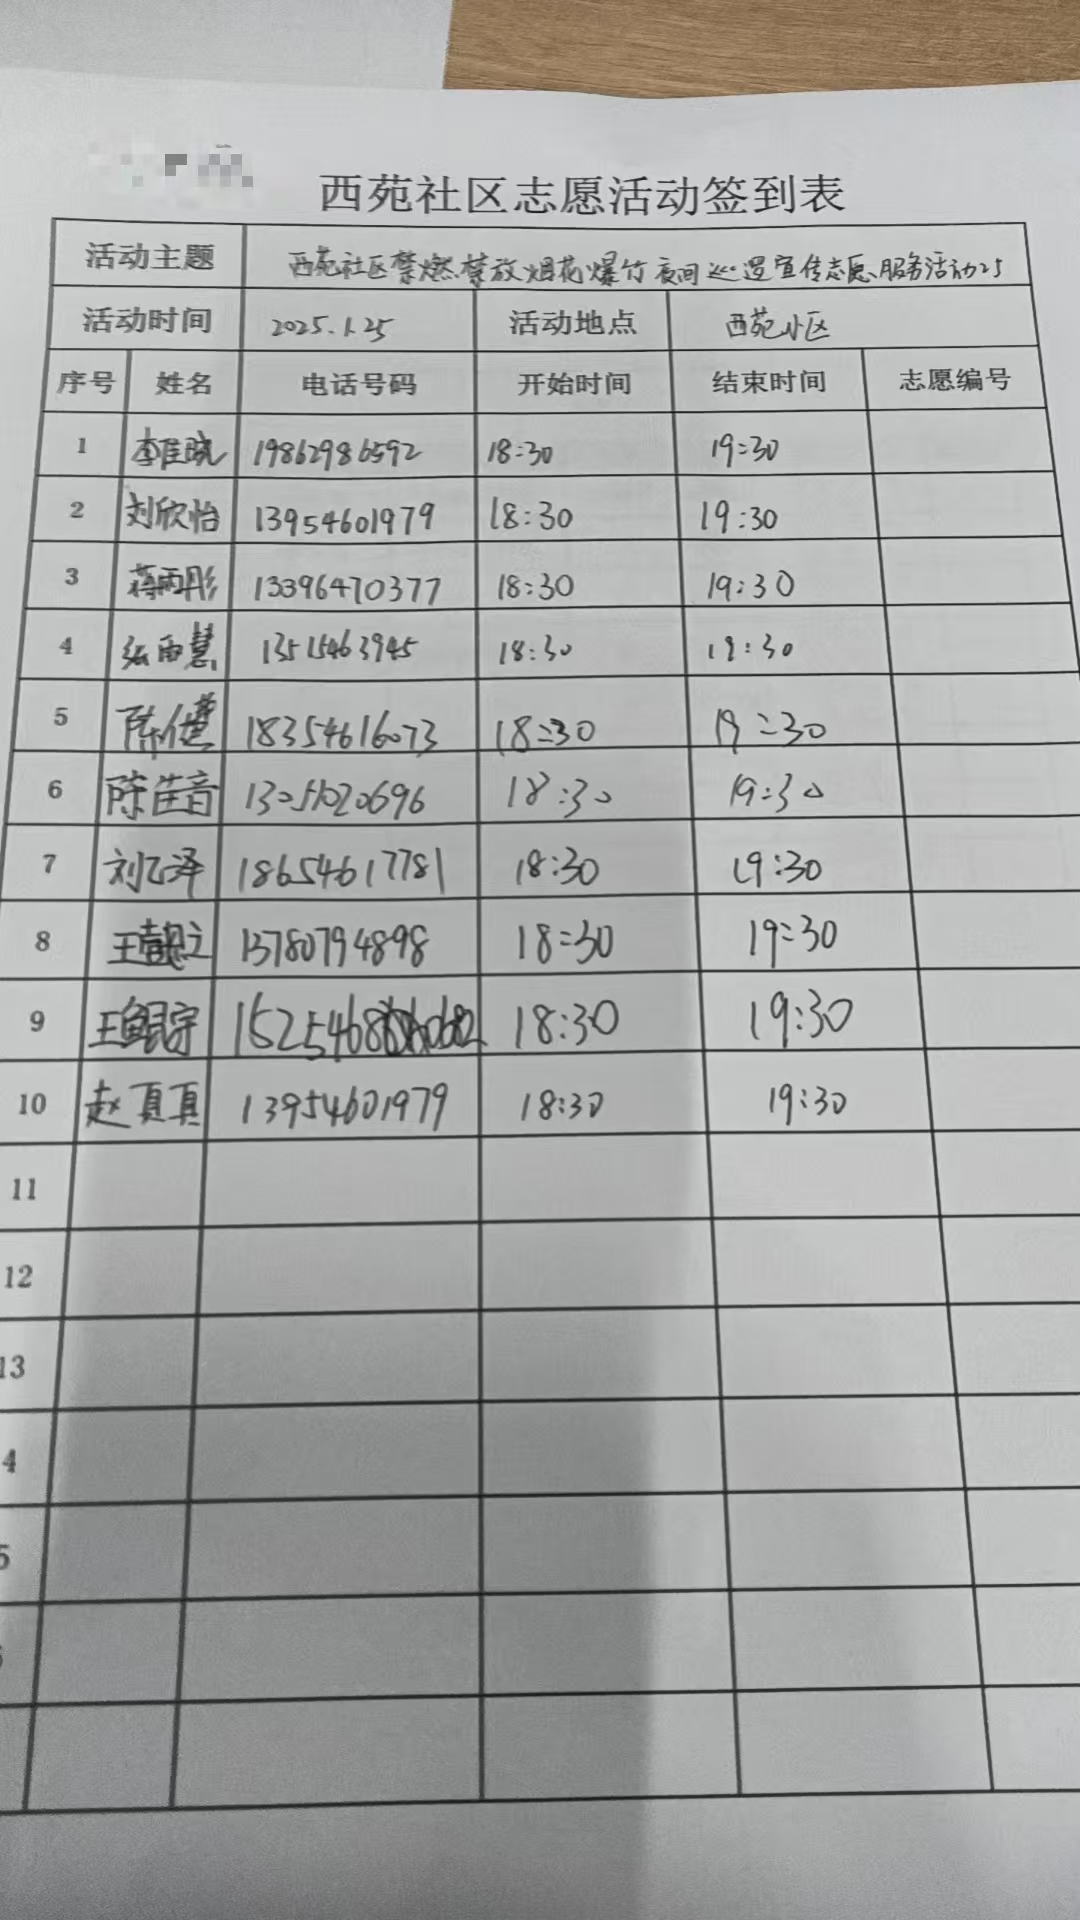 西苑社区志愿活动签到表
活动主题 西苑社区禁燃禁放烟花爆竹夜间巡逻宣传志愿服务活动25
活动时间 2025.1.25 活动地点 西苑小区
序号 姓名 电话号码 开始时间 结束时间 志愿编号
1 李佳晓 19862986592 18:30 19:30
2 刘欣怡 13954601979 18:30 19:30
3 蒋雨彤 13396470377 18:30 19:30
4 张雨慧 13515463945 18:30 19:30
5 陈 18354616073 18:30 19:30
6 陈苗音 13051020696 18:30 19:30
7 刘乙泽 18654617781 18:30 19:30
8 王 13780794898 18:30 19:30
9 王鲲宇 18:30 19:30
10 赵真真 13954601979 18:30 19:30
11
12
13
4
5